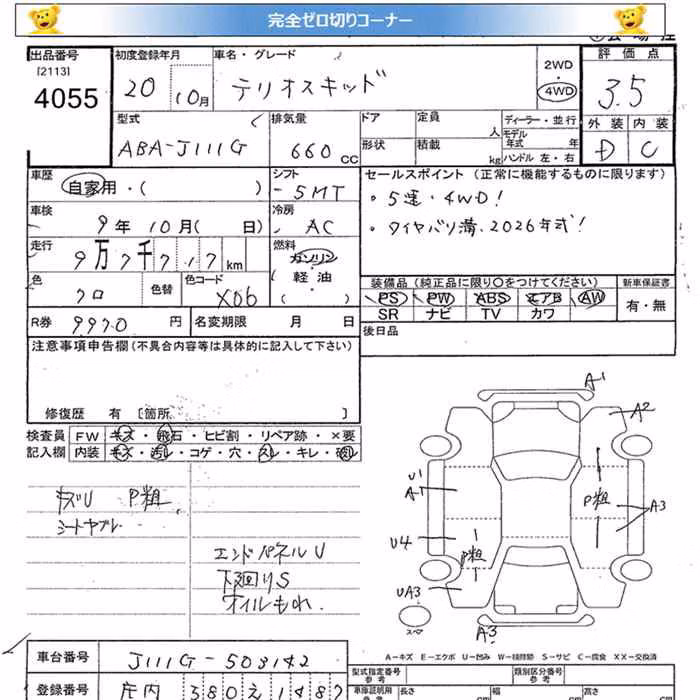 完全ゼロ切りコーナー
出品番号
[2113]
4055
初度登録年月
20
10月
車名・グレード
テリオスキッド
2WD
4WD
評価点
3.5
外装 内装
D C
型式
ABA-J111G
排気量
660 CC
ドア
定員
人
形状
積載
kg
ディーラー・並行
モデル年式
年
ハンドル 左・右
車歴
自家用・( )
シフト
5MT
セールスポイント (正常に機能するものに限ります)
・5速・4WD!
・タイヤバリ溝.2026年式!
車検
9年10月( 日)
冷房
AC
走行
9万7千717km
燃料
ガソリン
軽油
( )
色
クロ
色替
色コード
X06
装備品 (純正品に限り〇をつけてください)
新車保証書
PS PW ABS エアB AW
SR ナビ TV カワ
有・無
R券
9970円
名変期限 月 日
後日品
注意事項申告欄(不具合内容等は具体的に記入して下さい)
修復歴 有 〔箇所 〕
検査員記入欄
FW キズ・飛石・ヒビ割・リペア跡・×要
内装 キズ・汚レ・コゲ・穴・スレ・キレ・破レ
キズU P粗
シートヤブレ
エンドパネルU
下廻りS
オイルもれ.
A1
A2
U1
A1
P粗
A3
U4
P粗
UA3
スペア
A3
A-キズ E-エクボ U-凹み W-補修跡 S-サビ C-腐食 XX-交換済
車台番号
J111G-503142
登録番号
庄内 380 え 1487
型式指定番号
類別区分番号
参考
参考
車庫証明用
長さ
cm
幅
cm
高さ
cm